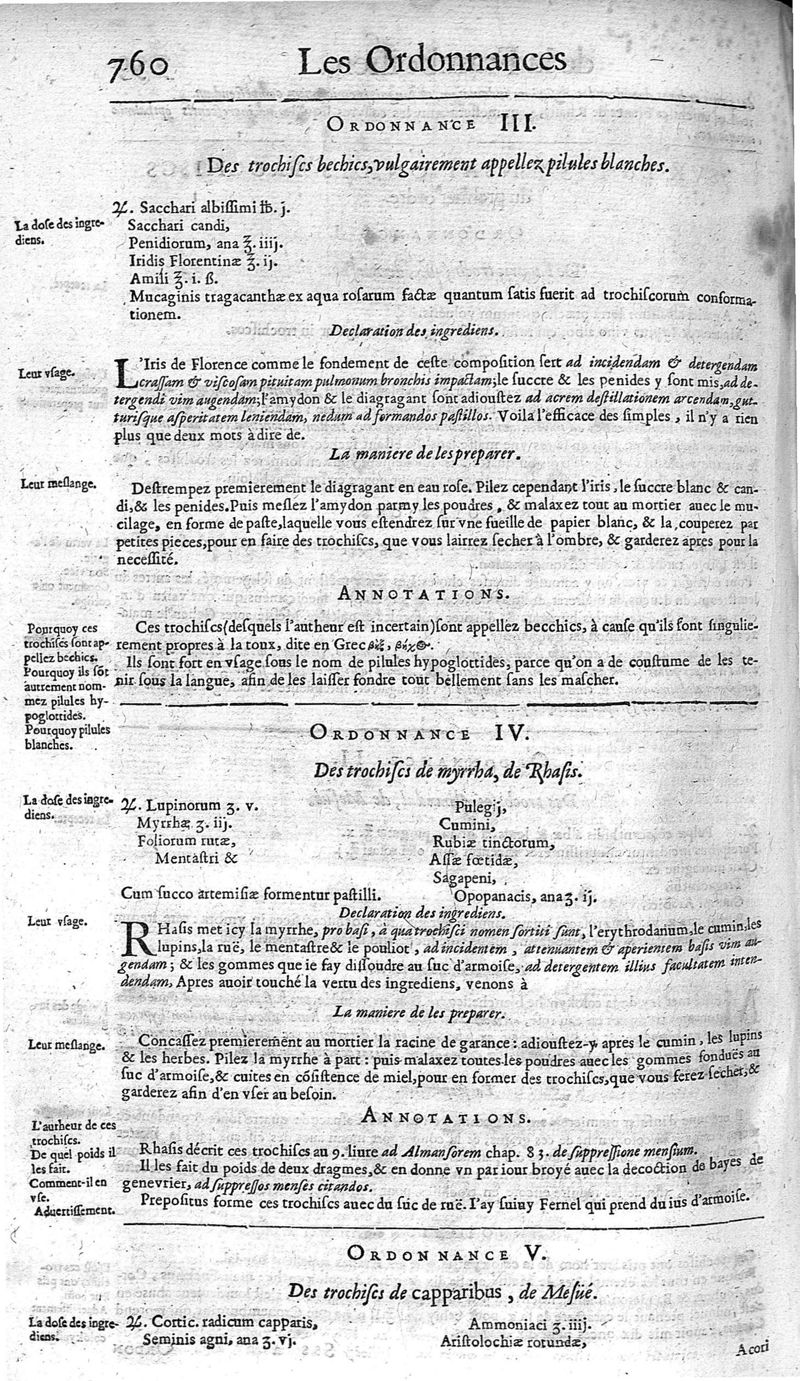 760 Les Ordonnances
ORDONNANCE III.
Des trochiſcs bechics, vulgairement appellez pilules blanches.
La doſe des ingre-
diens.
♃. Sacchari albiſſimi ℔. j.
Sacchari candi,
Penidiorum, ana ℥. iiij.
Iridis Florentinæ ℥. ij.
Amili ℥. i. ß.
Mucaginis tragacanthæ ex aqua roſarum factæ quantum ſatis fuerit ad trochiſcorum conforma-
tionem.
Declaration des ingrediens.
Leur vſage.
L'Iris de Florence comme le fondement de ceſte compoſition ſert ad incidendam & detergendam
craſſam & viſcoſam pituitam pulmonum bronchis impactam; le ſuccre & les penides y ſont mis, ad de-
tergendi vim augendam; l'amydon & le diagragant ſont adiouſtez ad acrem deſtillationem arcendam, gut-
turiſque aſperitatem leniendam, nedum ad formandos paſtillos. Voila l'efficace des ſimples, il n'y a rien
plus que deux mots à dire de.
La maniere de les preparer.
Leur meſlange.
Deſtrempez premierement le diagragant en eau roſe. Pilez cependant l'iris, le ſuccre blanc & can-
di, & les penides. Puis meſlez l'amydon parmy les poudres, & malaxez tout au mortier auec le mu-
cilage, en forme de paſte, laquelle vous eſtendrez ſur vne fueille de papier blanc, & la couperez par
petites pieces, pour en faire des trochiſcs, que vous lairrez ſecher à l'ombre, & garderez apres pour la
neceſſité.
ANNOTATIONS.
Pourquoy ces
trochiſcs ſont ap-
pellez bechics.
Pourquoy ils ſõt
autrement nom-
mez pilules hy-
poglottides.
Pourquoy pilules
blanches.
Ces trochiſcs (deſquels l'autheur eſt incertain) ſont appellez becchics, à cauſe qu'ils ſont ſingulie-
rement propres à la toux, dite en Grec βὴξ, βηχὸς.
Ils ſont fort en vſage ſous le nom de pilules hypoglottides, parce qu'on a de couſtume de les te-
nir ſous la langue, afin de les laiſſer fondre tout bellement ſans les maſcher.
ORDONNANCE IV.
Des trochiſcs de myrrha, de Rhaſis.
La doſe des ingre-
diens.
♃. Lupinorum ʒ. v.
Myrrhæ ʒ. iij.
Foliorum rutæ,
Mentaſtri &
Pulegij,
Cumini,
Rubiæ tinctorum,
Aſſæ fœtidæ,
Sagapeni,
Cum ſucco artemiſiæ formentur paſtilli. Opopanacis, ana ʒ. ij.
Declaration des ingrediens.
Leur vſage.
RHaſis met icy la myrrhe, pro baſi, à qua trochiſci nomen ſortiti ſunt, l'erythrodanum, le cumin, les
lupins, la ruë, le mentaſtre & le pouliot, ad incidentem, attenuantem & aperientem baſis vim au-
gendam; & les gommes que ie fay diſſoudre au ſuc d'armoiſe, ad detergentem illius facultatem inten-
dendam, Apres auoir touché la vertu des ingrediens, venons à
La maniere de les preparer.
Leur meſlange.
Concaſſez premierement au mortier la racine de garance: adiouſtez-y apres le cumin, les lupins
& les herbes. Pilez la myrrhe à part: puis malaxez toutes les poudres auec les gommes fonduës au
ſuc d'armoiſe, & cuites en cõſiſtence de miel, pour en former des trochiſcs, que vous ferez ſecher, &
garderez afin d'en vſer au beſoin.
ANNOTATIONS.
L'autheur de ces
trochiſcs.
De quel poids il
les fait.
Comment il en
vſe.
Aduertiſſement.
Rhaſis décrit ces trochiſcs au 9. liure ad Almanſorem chap. 83. de ſuppreſſione menſium.
Il les fait du poids de deux dragmes, & en donne vn par iour broyé auec la decoction de bayes de
geneurier, ad ſuppreſſos menſes citandos.
Prepoſitus forme ces trochiſcs auec du ſuc de ruë. I'ay ſuiuy Fernel qui prend du ius d'armoiſe.
ORDONNANCE V.
Des trochiſcs de capparibus, de Meſué.
La doſe des ingre-
diens.
♃. Cortic. radicum capparis,
Seminis agni, ana ʒ. vj.
Ammoniaci ʒ. iiij.
Ariſtolochiæ rotundæ,
Acori